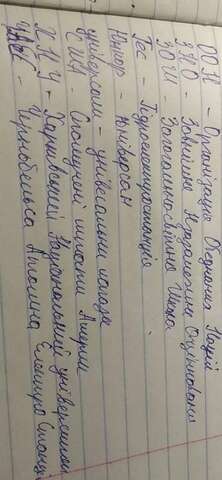 ООН - Організація Обєднаних Націй
ЗНО - Зовнішнє Незалежне Оцінювання
ЗОШ - Загальноосвітня Школа
Гес - Гідроелектростанція
Юннор - Юніверсал
універсам - універсальний магазин
США - Сполучені штати Америки
ХНУ - Харківський Національний університет
ЧАЕС - Чорнобильська Атомна Електро Станція